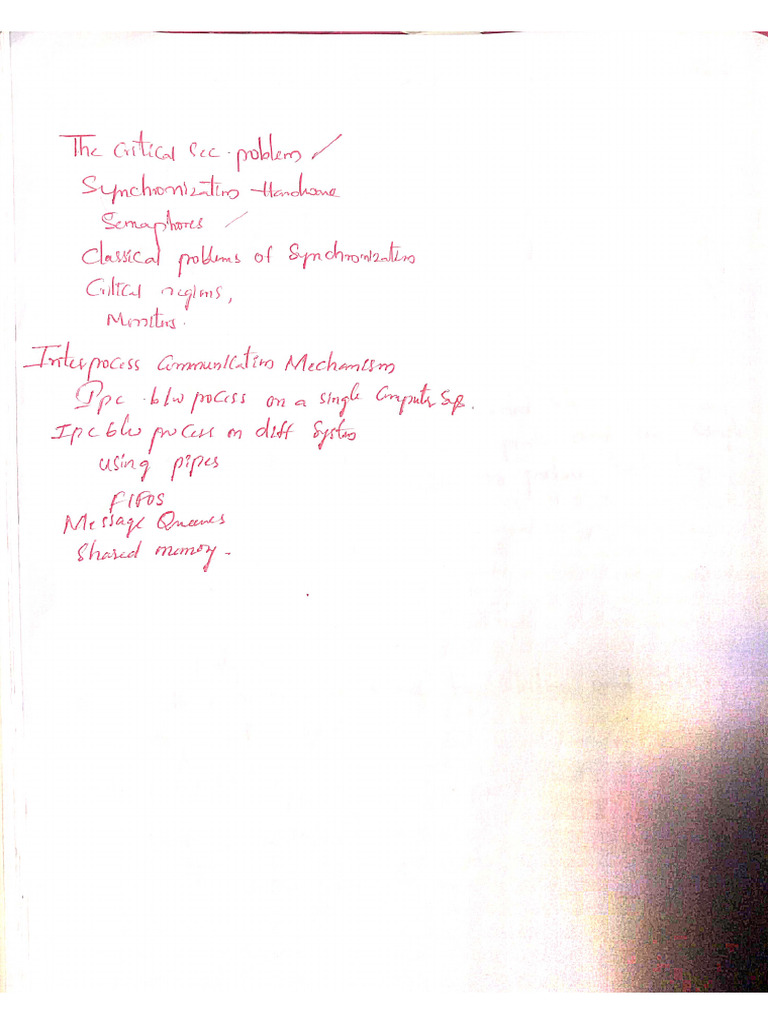 The Critical Sec. problem ✓
Synchronization Hardware
Semaphores ✓
Classical problems of Synchronization
Critical regions,
Monitors.
Interprocess Communication Mechanism
Ipc b/w process on a single Computer Sys.
Ipc b/w process on diff System
using pipes
FIFOS
Message Queues
Shared memory.